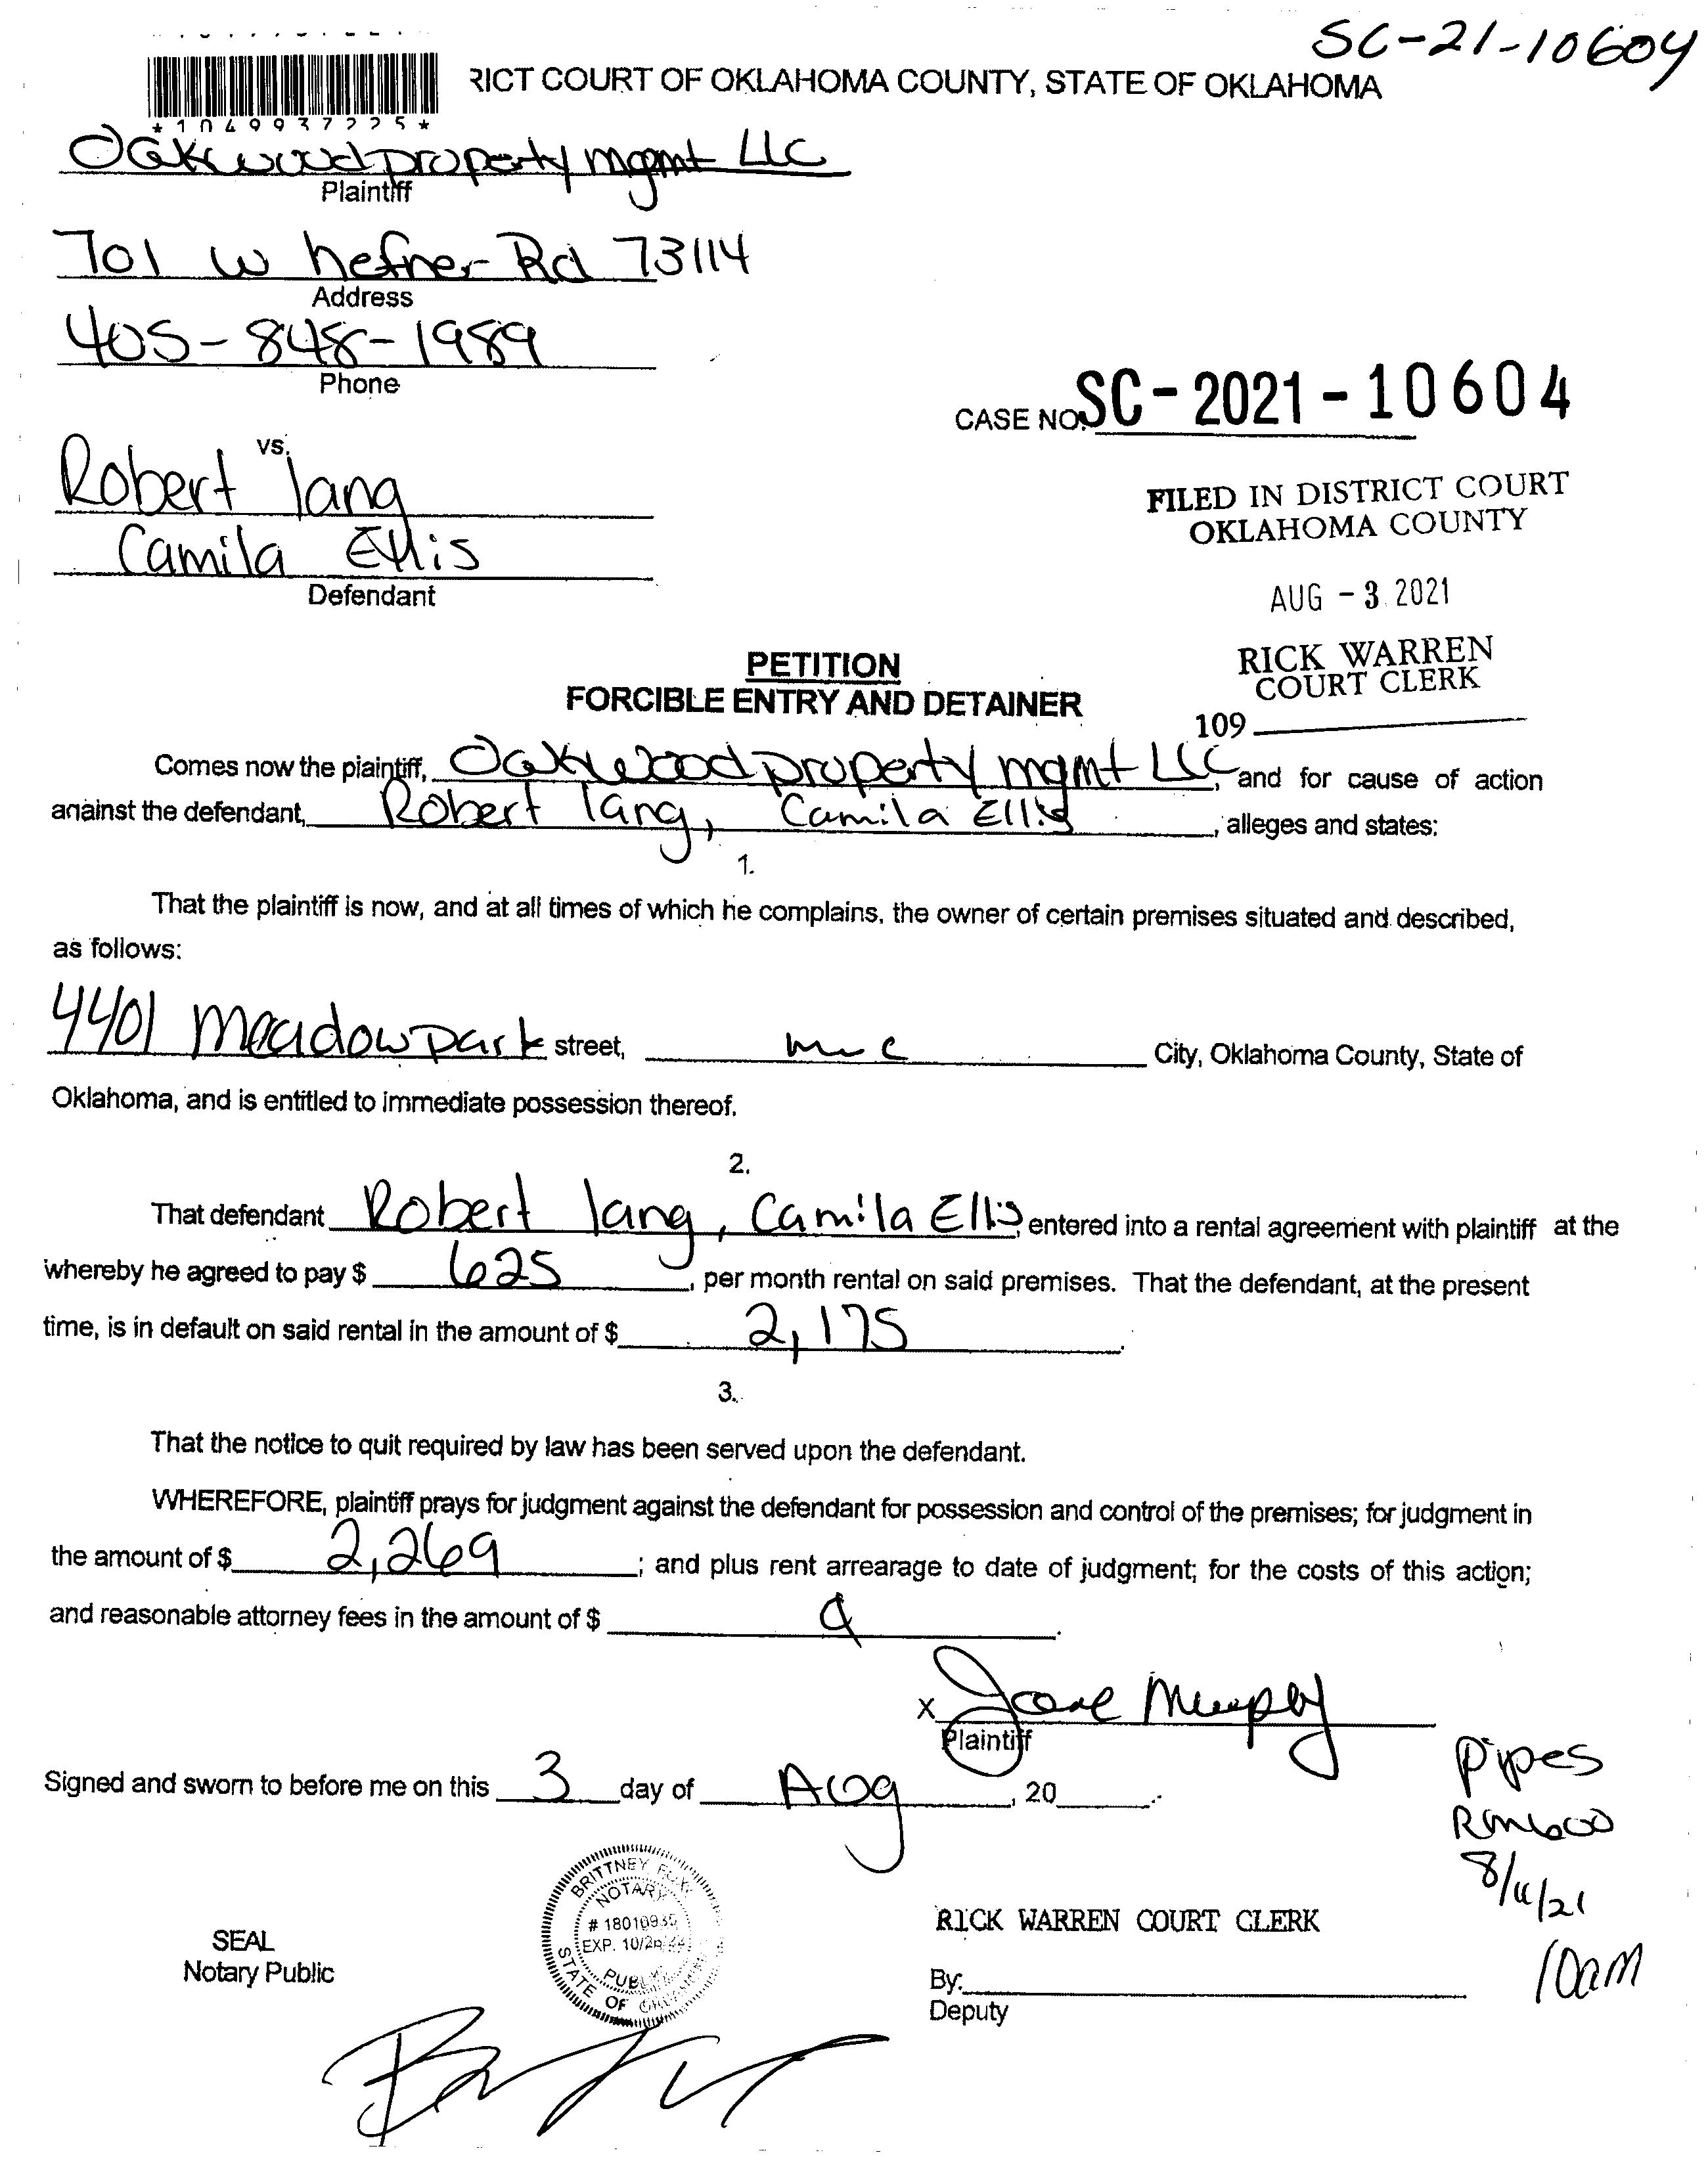 SC-21-10604
RICT COURT OF OKLAHOMA COUNTY, STATE OF OKLAHOMA
*1049937225*
Oakwood property mgmt LLC
Plaintiff
701 W hefner Rd 73114
Address
405-848-1989
Phone
CASE NO. SC-2021-10604
vs.
Robert lang
Camila Ellis
Defendant
FILED IN DISTRICT COURT
OKLAHOMA COUNTY
AUG -3 2021
RICK WARREN
COURT CLERK
109
PETITION
FORCIBLE ENTRY AND DETAINER
Comes now the plaintiff, Oakwood property mgmt LLC, and for cause of action
against the defendant, Robert lang, Camila Ellis, alleges and states:
1.
That the plaintiff is now, and at all times of which he complains, the owner of certain premises situated and described,
as follows:
4401 Meadowpark street, City, Oklahoma County, State of
Oklahoma, and is entitled to immediate possession thereof.
2.
That defendant Robert lang, Camila Ellis, entered into a rental agreement with plaintiff at the
whereby he agreed to pay $ 625, per month rental on said premises. That the defendant, at the present
time, is in default on said rental in the amount of $ 2,175.
3.
That the notice to quit required by law has been served upon the defendant.
WHEREFORE, plaintiff prays for judgment against the defendant for possession and control of the premises; for judgment in
the amount of $ 2,269; and plus rent arrearage to date of judgment; for the costs of this action;
and reasonable attorney fees in the amount of $
X Murphy
Plaintiff
Signed and sworn to before me on this 3 day of Aug, 20
Pipes
Rm 600
10am
BRITTNEY
NOTARY
EXP.
PUBLIC
STATE OF
SEAL
Notary Public
RICK WARREN COURT CLERK
By:
Deputy